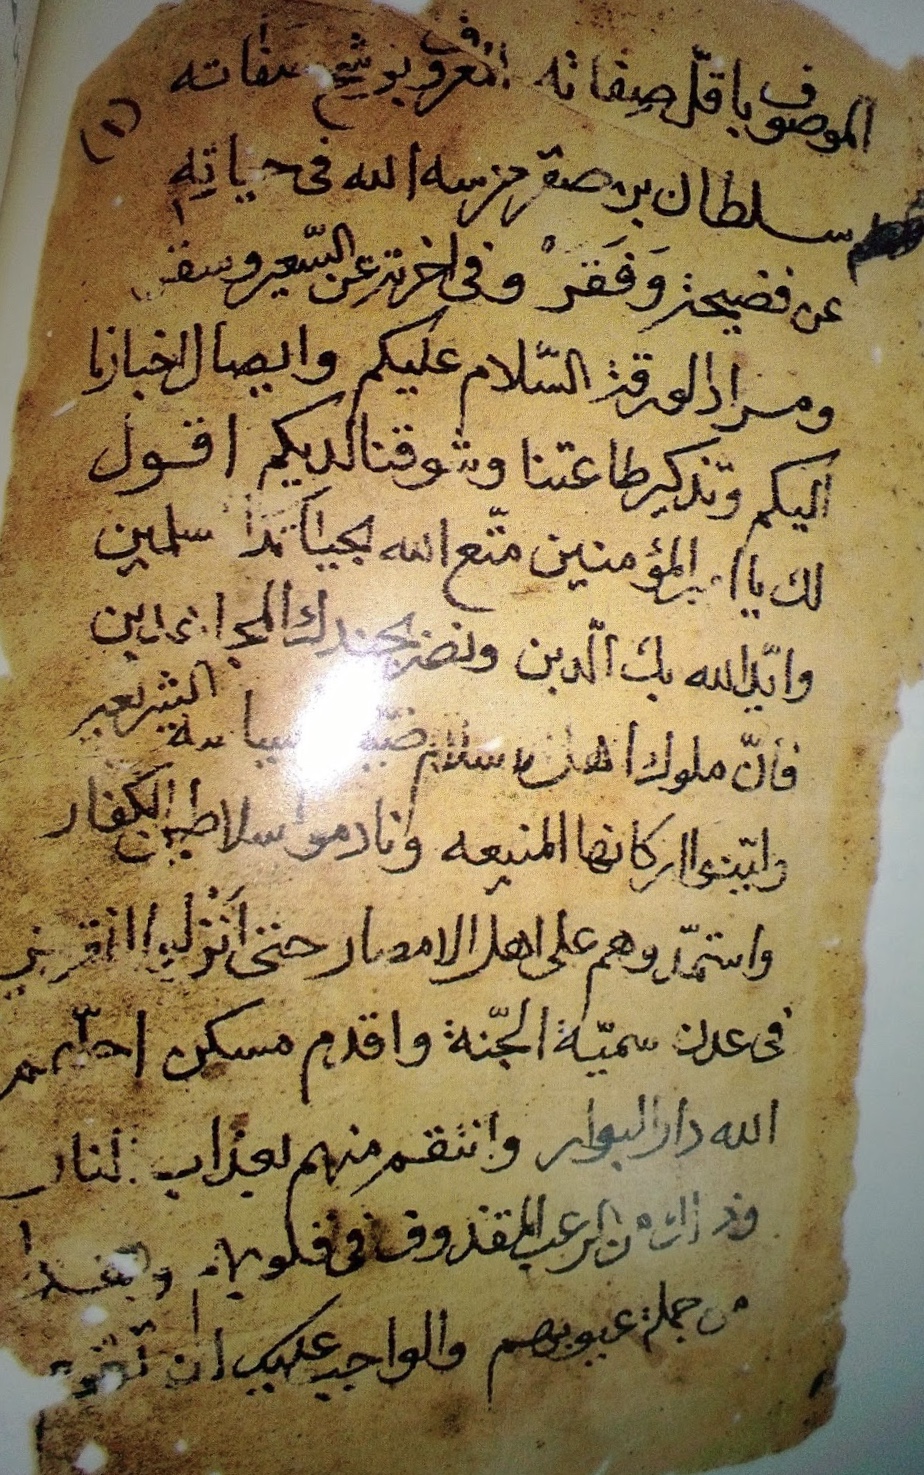 الموصوف باقلّ صفاته المعروف بوشيح صفاته
(١)
سلطان بن صقر حرسه الله فى حياتِهِ
عن فضيحة وَفَقَرْ وفى اخرته عن السّعير وسقر
ومراد الورقة السّلام عليكم وايصال اخبارنا
اليكم وتذكير طاعتنا وشوقنا لديكم اقول
لك يا امير المؤمنين متّع الله بحياتك المسلمين
وايّد الله بك الّدين ونصر بجندك المجاهدين
فانّ ملوك اهل الاسلام السياسة الشريعه
اركانها المنيعه ونادموا سلاطين الكفار
واستمدّوهم على اهل الامصار حتى انزلوا
فى عدن سميّة الجّنة واقدم مسكن احلّهم
الله دار البوار وانتقم منهم بعذاب النار
وذلك من الرعب المقذوف فى قلوبهم
من جملة عيوبهم والواجب عليك ان